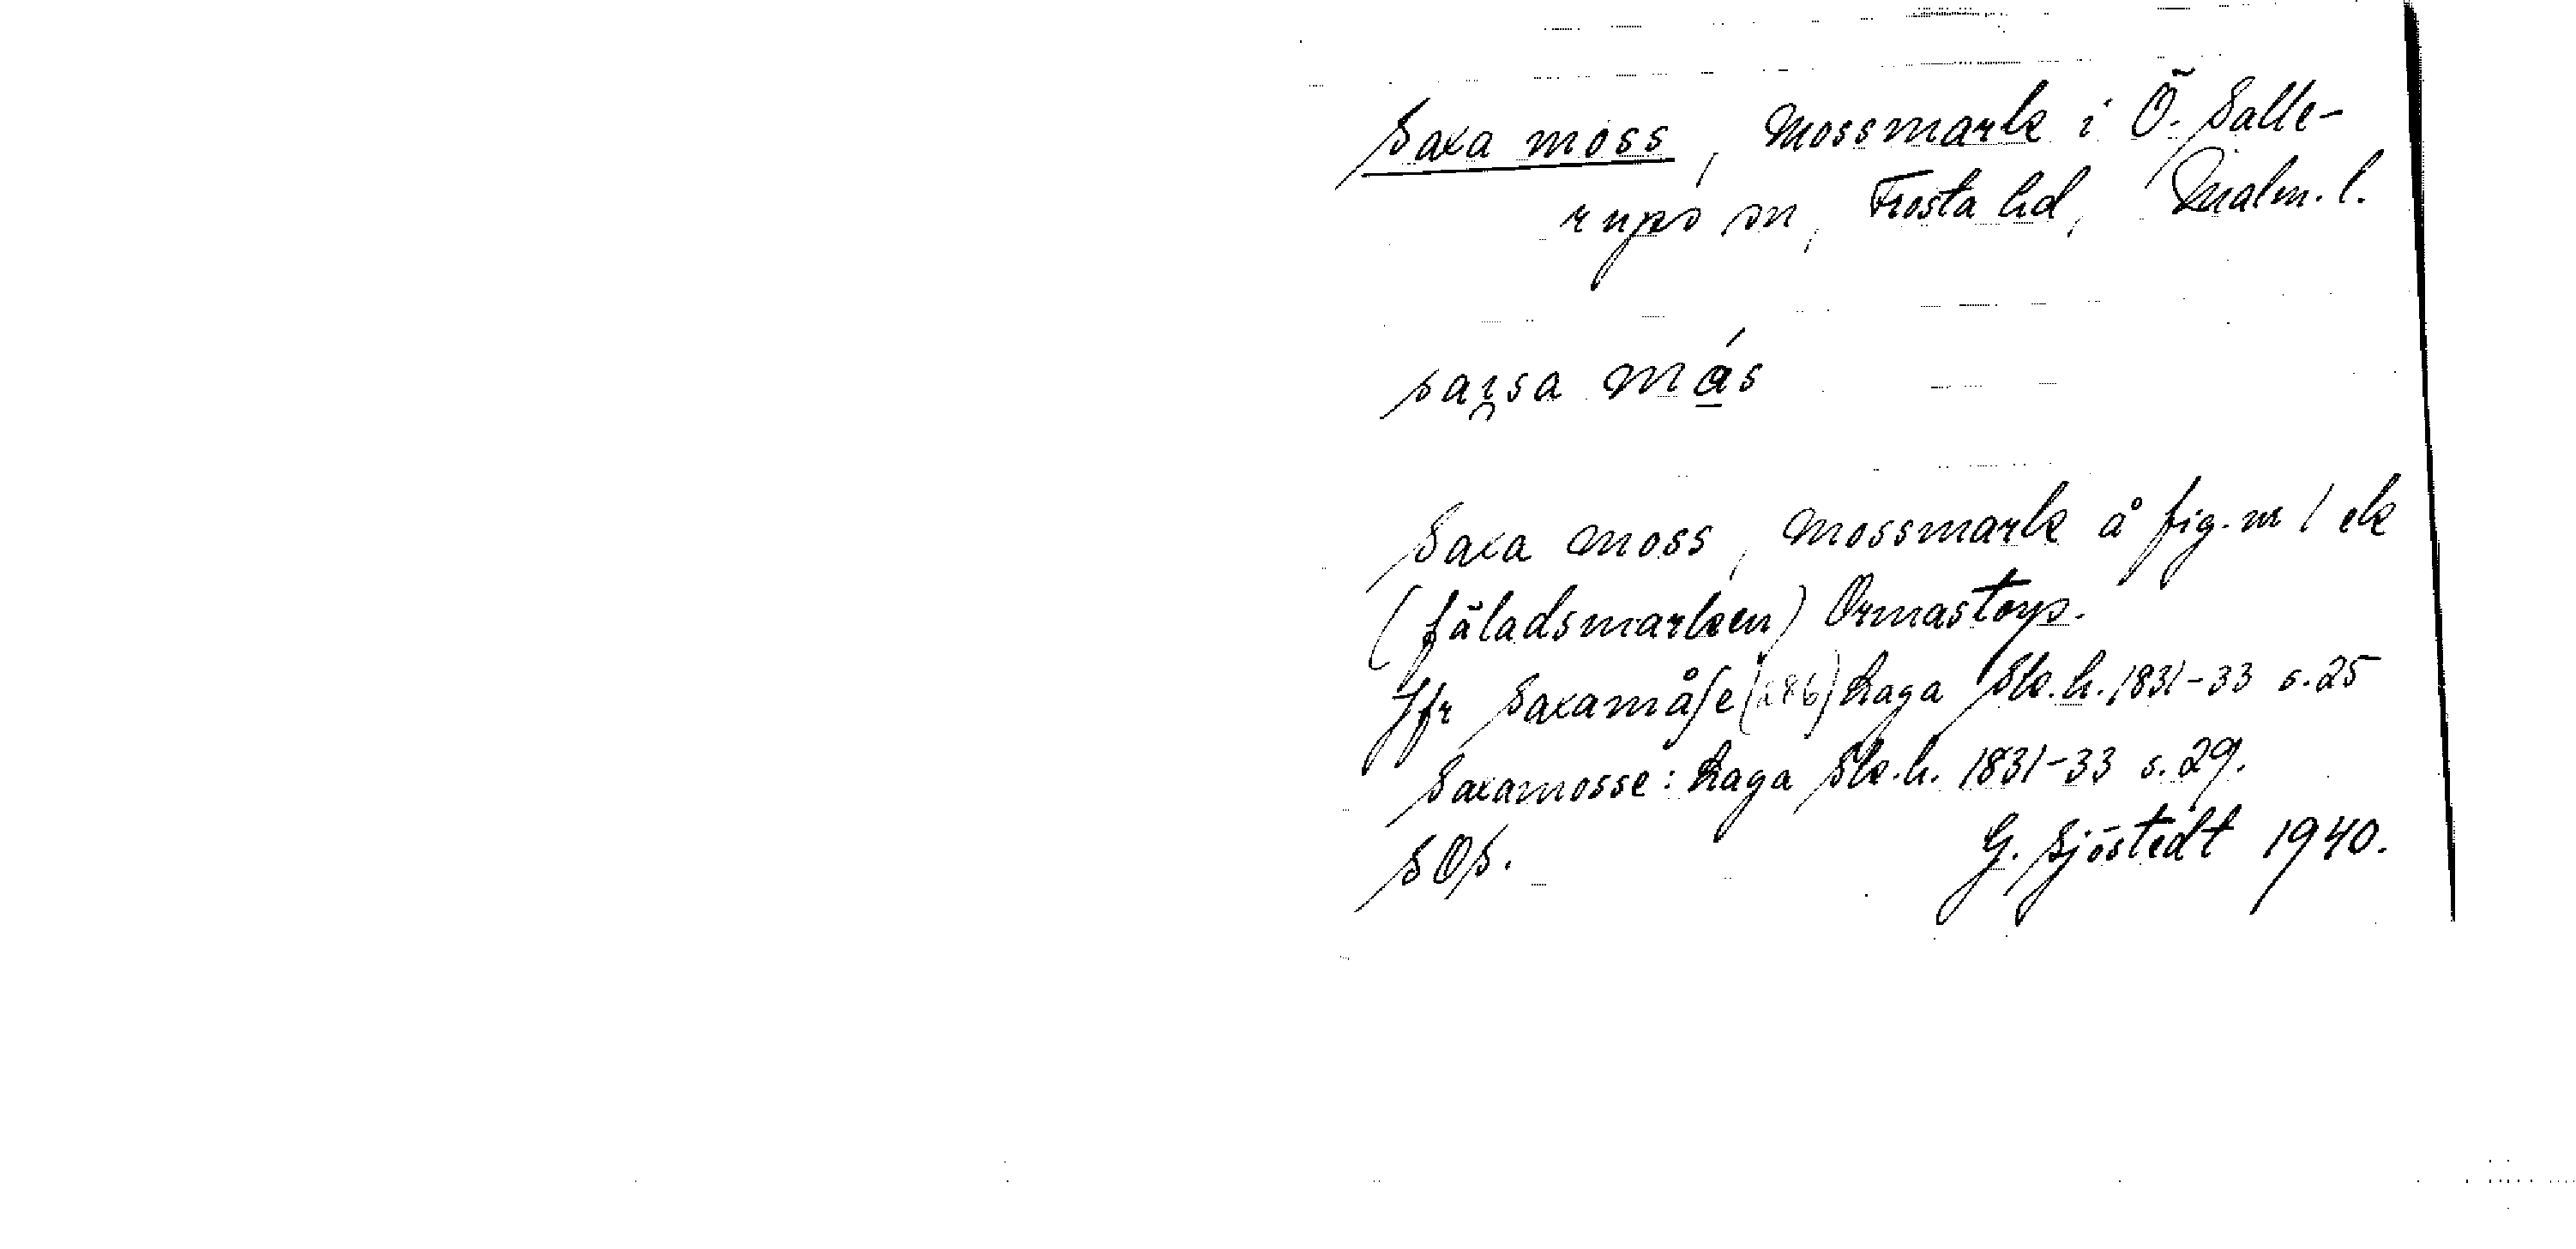 Saxa moss, Mossmark i Ö. Salle-
rups sn, Frosta hd, Malm. l.
Saxa moss, mossmark å fig. nr 1 ek
(fäladsmarken) Ormastorp.
Jfr Saxamåse (286) Laga Sk. h. 1831-33 s. 25
Saxamosse: Laga Sk. h. 1831-33 s. 29.
SOS. G. Sjöstedt 1940.